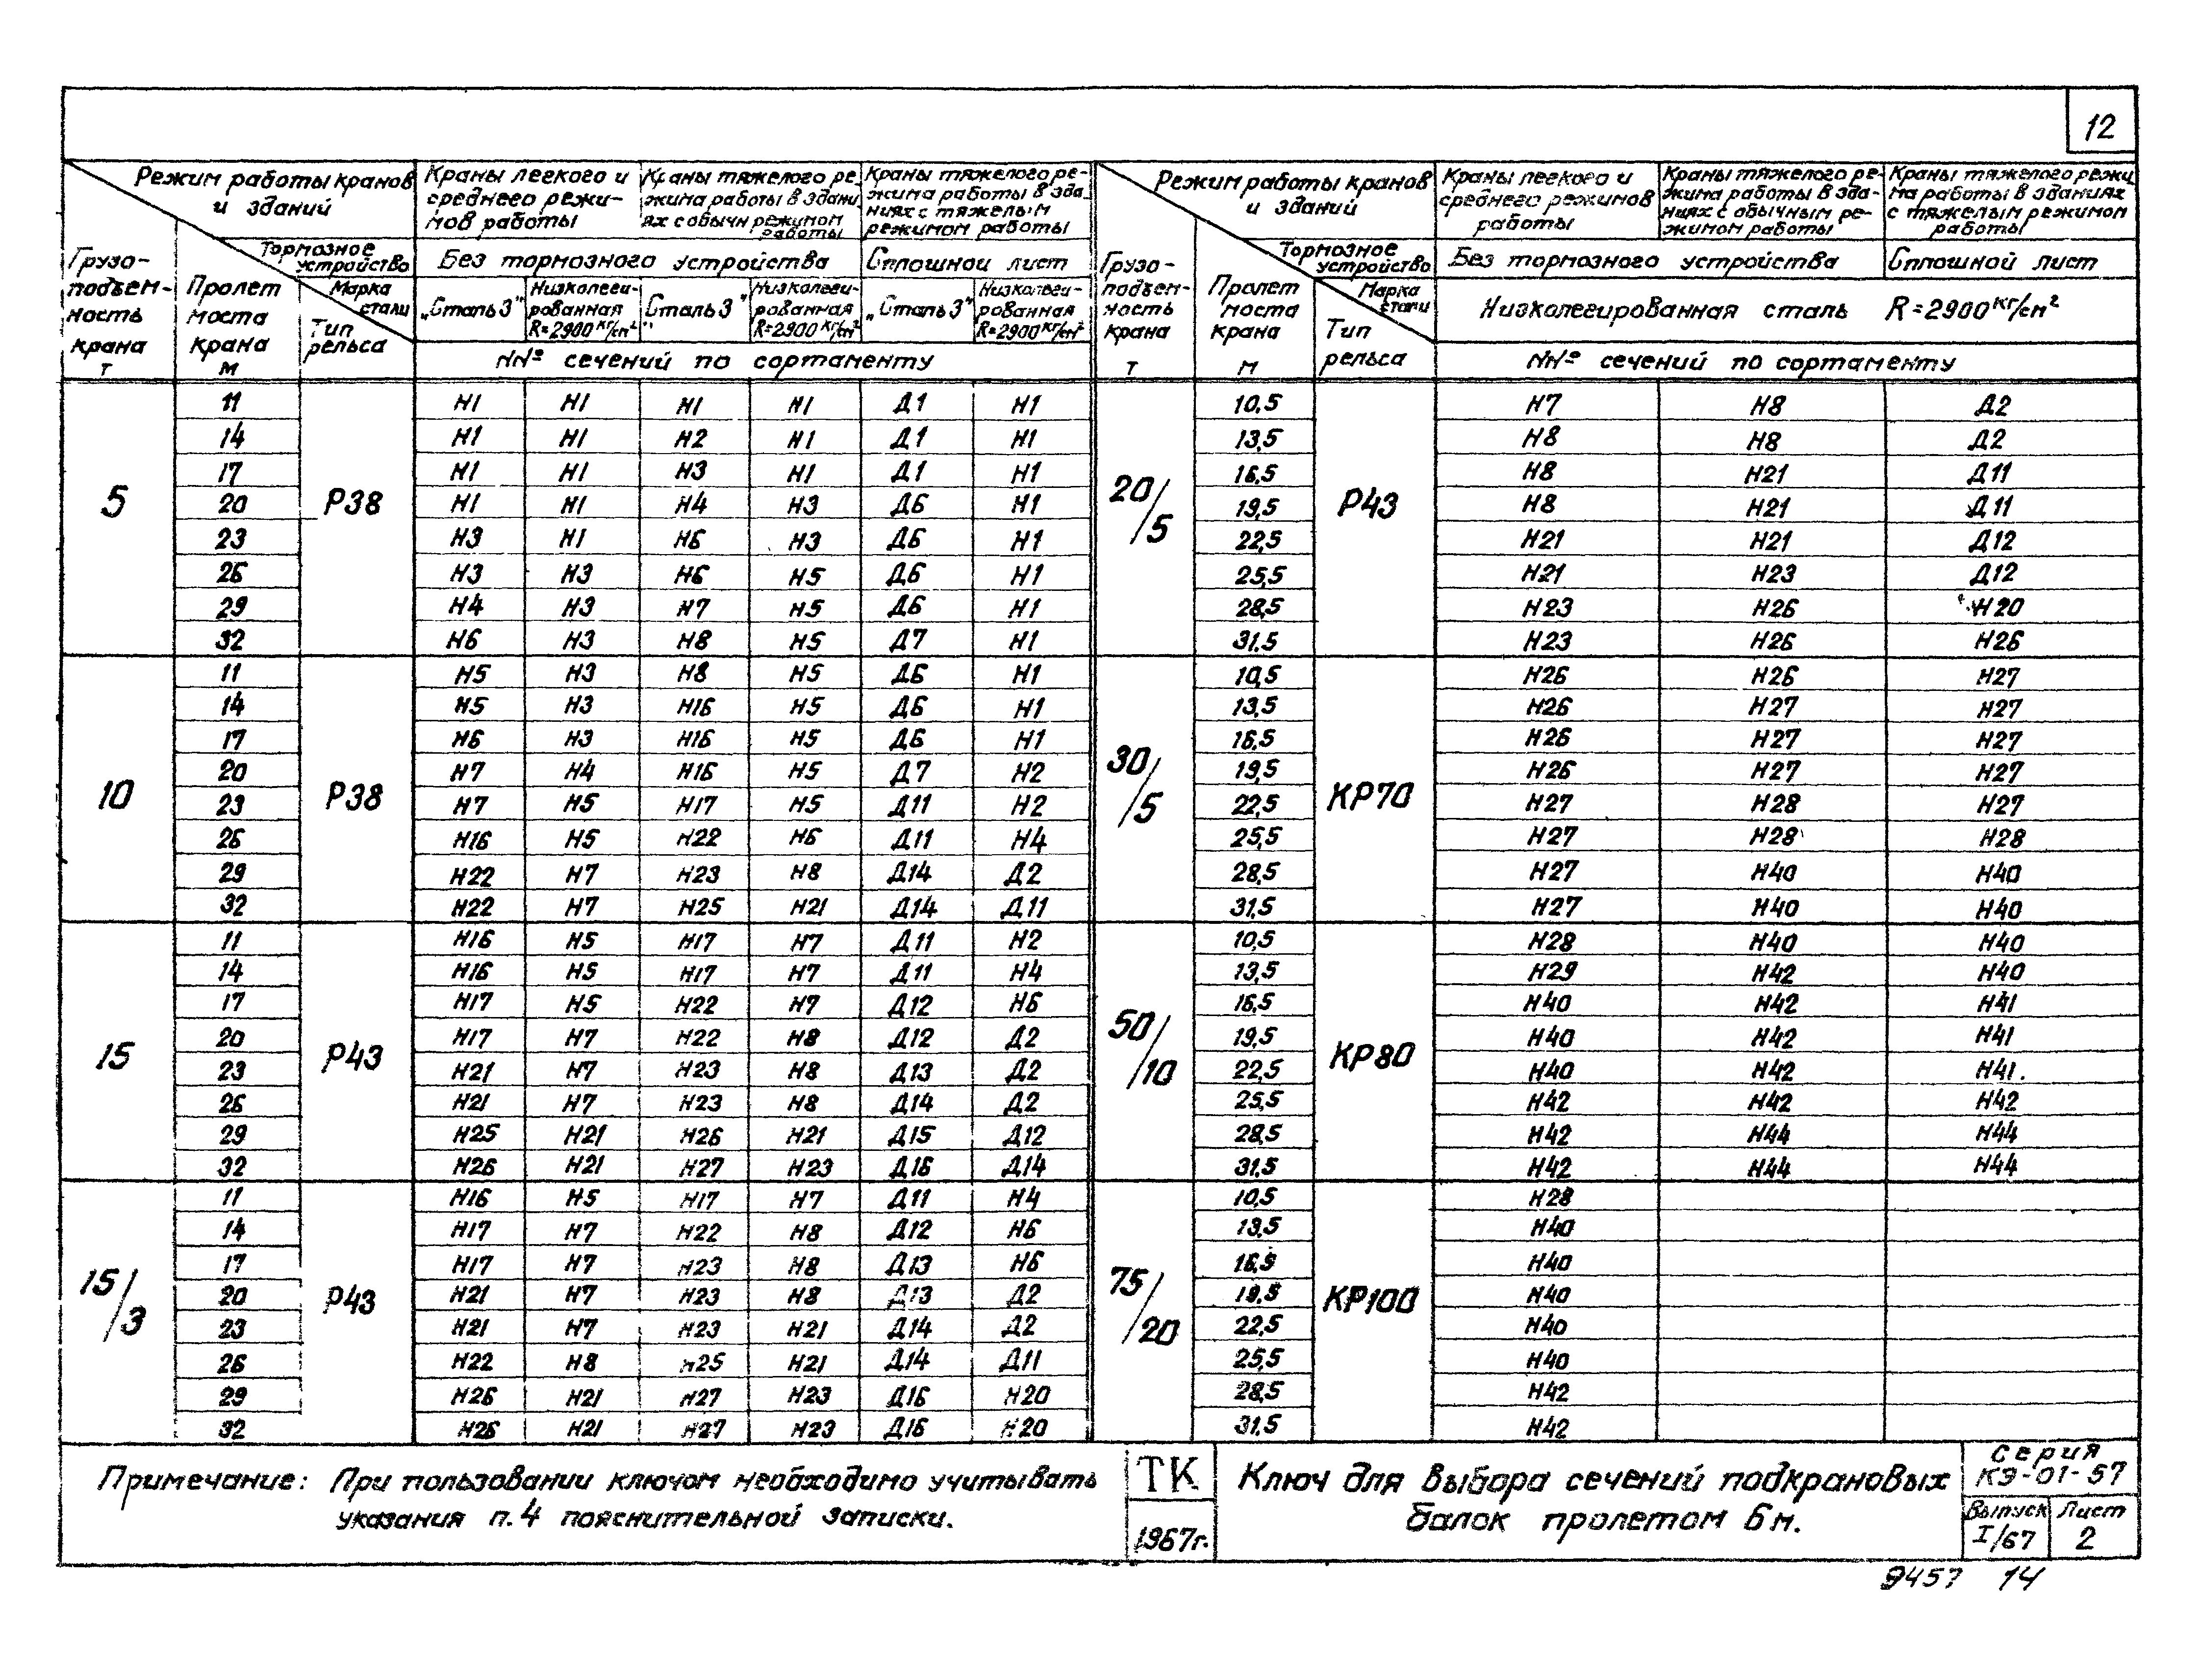 12
Режим работы кранов
и зданий
Краны легкого и
среднего режи-
мов работы
Краны тяжелого ре-
жима работы в здани-
ях с обычн режимом
работы
Краны тяжелого ре-
жима работы в зда-
ниях с тяжелым
режимом работы
Тормозное
устройство
Без тормозного устройства
Сплошной лист
Грузо-
подъем-
ность
крана
т
Пролет
моста
крана
м
Марка
стали
Тип
рельса
„Сталь 3"
Низколеги-
рованная
R=2900 кг/см²
„Сталь 3"
Низколеги-
рованная
R=2900 кг/см²
„Сталь 3"
Низколеги-
рованная
R=2900 кг/см²
NNº сечений по сортаменту
5 Р38
11 Н1 Н1 Н1 Н1 Д1 Н1
14 Н1 Н1 Н2 Н1 Д1 Н1
17 Н1 Н1 Н3 Н1 Д1 Н1
20 Н1 Н1 Н4 Н3 Д6 Н1
23 Н3 Н1 Н6 Н3 Д6 Н1
26 Н3 Н3 Н6 Н5 Д6 Н1
29 Н4 Н3 Н7 Н5 Д6 Н1
32 Н6 Н3 Н8 Н5 Д7 Н1
10 Р38
11 Н5 Н3 Н8 Н5 Д6 Н1
14 Н5 Н3 Н16 Н5 Д6 Н1
17 Н6 Н3 Н16 Н5 Д6 Н1
20 Н7 Н4 Н16 Н5 Д7 Н2
23 Н7 Н5 Н17 Н5 Д11 Н2
26 Н16 Н5 Н22 Н6 Д11 Н4
29 Н22 Н7 Н23 Н8 Д14 Д2
32 Н22 Н7 Н25 Н21 Д14 Д11
15 Р43
11 Н16 Н5 Н17 Н7 Д11 Н2
14 Н16 Н5 Н17 Н7 Д11 Н4
17 Н17 Н5 Н22 Н7 Д12 Н6
20 Н17 Н7 Н22 Н8 Д12 Д2
23 Н21 Н7 Н23 Н8 Д13 Д2
26 Н21 Н7 Н23 Н8 Д14 Д2
29 Н25 Н21 Н26 Н21 Д15 Д12
32 Н26 Н21 Н27 Н23 Д16 Д14
15/3 Р43
11 Н16 Н5 Н17 Н7 Д11 Н4
14 Н17 Н7 Н22 Н8 Д12 Н6
17 Н17 Н7 Н23 Н8 Д13 Н6
20 Н21 Н7 Н23 Н8 Д13 Д2
23 Н21 Н7 Н23 Н21 Д14 Д2
26 Н22 Н8 Н25 Н21 Д14 Д11
29 Н26 Н21 Н27 Н23 Д16 Н20
32 Н26 Н21 Н27 Н23 Д16 Н20
Режим работы кранов
и зданий
Краны легкого и
среднего режимов
работы
Краны тяжелого ре-
жима работы в зда-
ниях с обычным ре-
жимом работы
Краны тяжелого режи
ма работы в зданиях
с тяжелым режимом
работы
Тормозное
устройство
Без тормозного устройства
Сплошной лист
Грузо-
подъем-
ность
крана
т
Пролет
моста
крана
м
Марка
стали
Тип
рельса
Низколегированная сталь R=2900 кг/см²
NNº сечений по сортаменту
20/5 Р43
10,5 Н7 Н8 Д2
13,5 Н8 Н8 Д2
16,5 Н8 Н21 Д11
19,5 Н8 Н21 Д11
22,5 Н21 Н21 Д12
25,5 Н21 Н23 Д12
28,5 Н23 Н26 Н20
31,5 Н23 Н26 Н26
30/5 КР70
10,5 Н26 Н26 Н27
13,5 Н26 Н27 Н27
16,5 Н26 Н27 Н27
19,5 Н26 Н27 Н27
22,5 Н27 Н28 Н27
25,5 Н27 Н28 Н28
28,5 Н27 Н40 Н40
31,5 Н27 Н40 Н40
50/10 КР80
10,5 Н28 Н40 Н40
13,5 Н29 Н42 Н40
16,5 Н40 Н42 Н41
19,5 Н40 Н42 Н41
22,5 Н40 Н42 Н41.
25,5 Н42 Н42 Н42
28,5 Н42 Н44 Н44
31,5 Н42 Н44 Н44
75/20 КР100
10,5 Н28
13,5 Н40
16,5 Н40
19,5 Н40
22,5 Н40
25,5 Н40
28,5 Н42
31,5 Н42
Примечание: При пользовании ключом необходимо учитывать
указания п.4 пояснительной записки.
ТК
1967г.
Ключ для выбора сечений подкрановых
балок пролетом 6м.
Серия
КЭ-01-57
Выпуск
I/67
Лист
2
9457 14